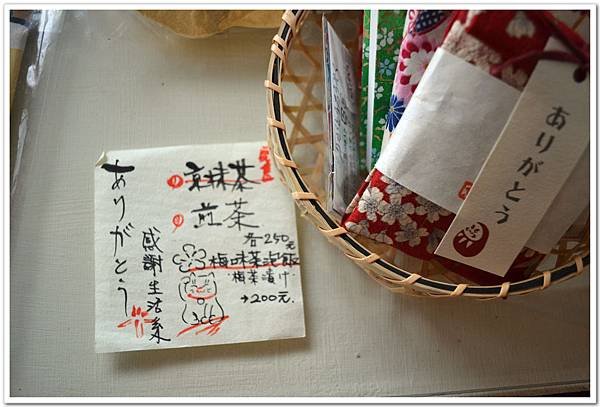 ありがとう
感謝生活系
京抹茶
煎茶
各250元
梅味茶泡飯
梅茶漬け
→200元.
ありがとう